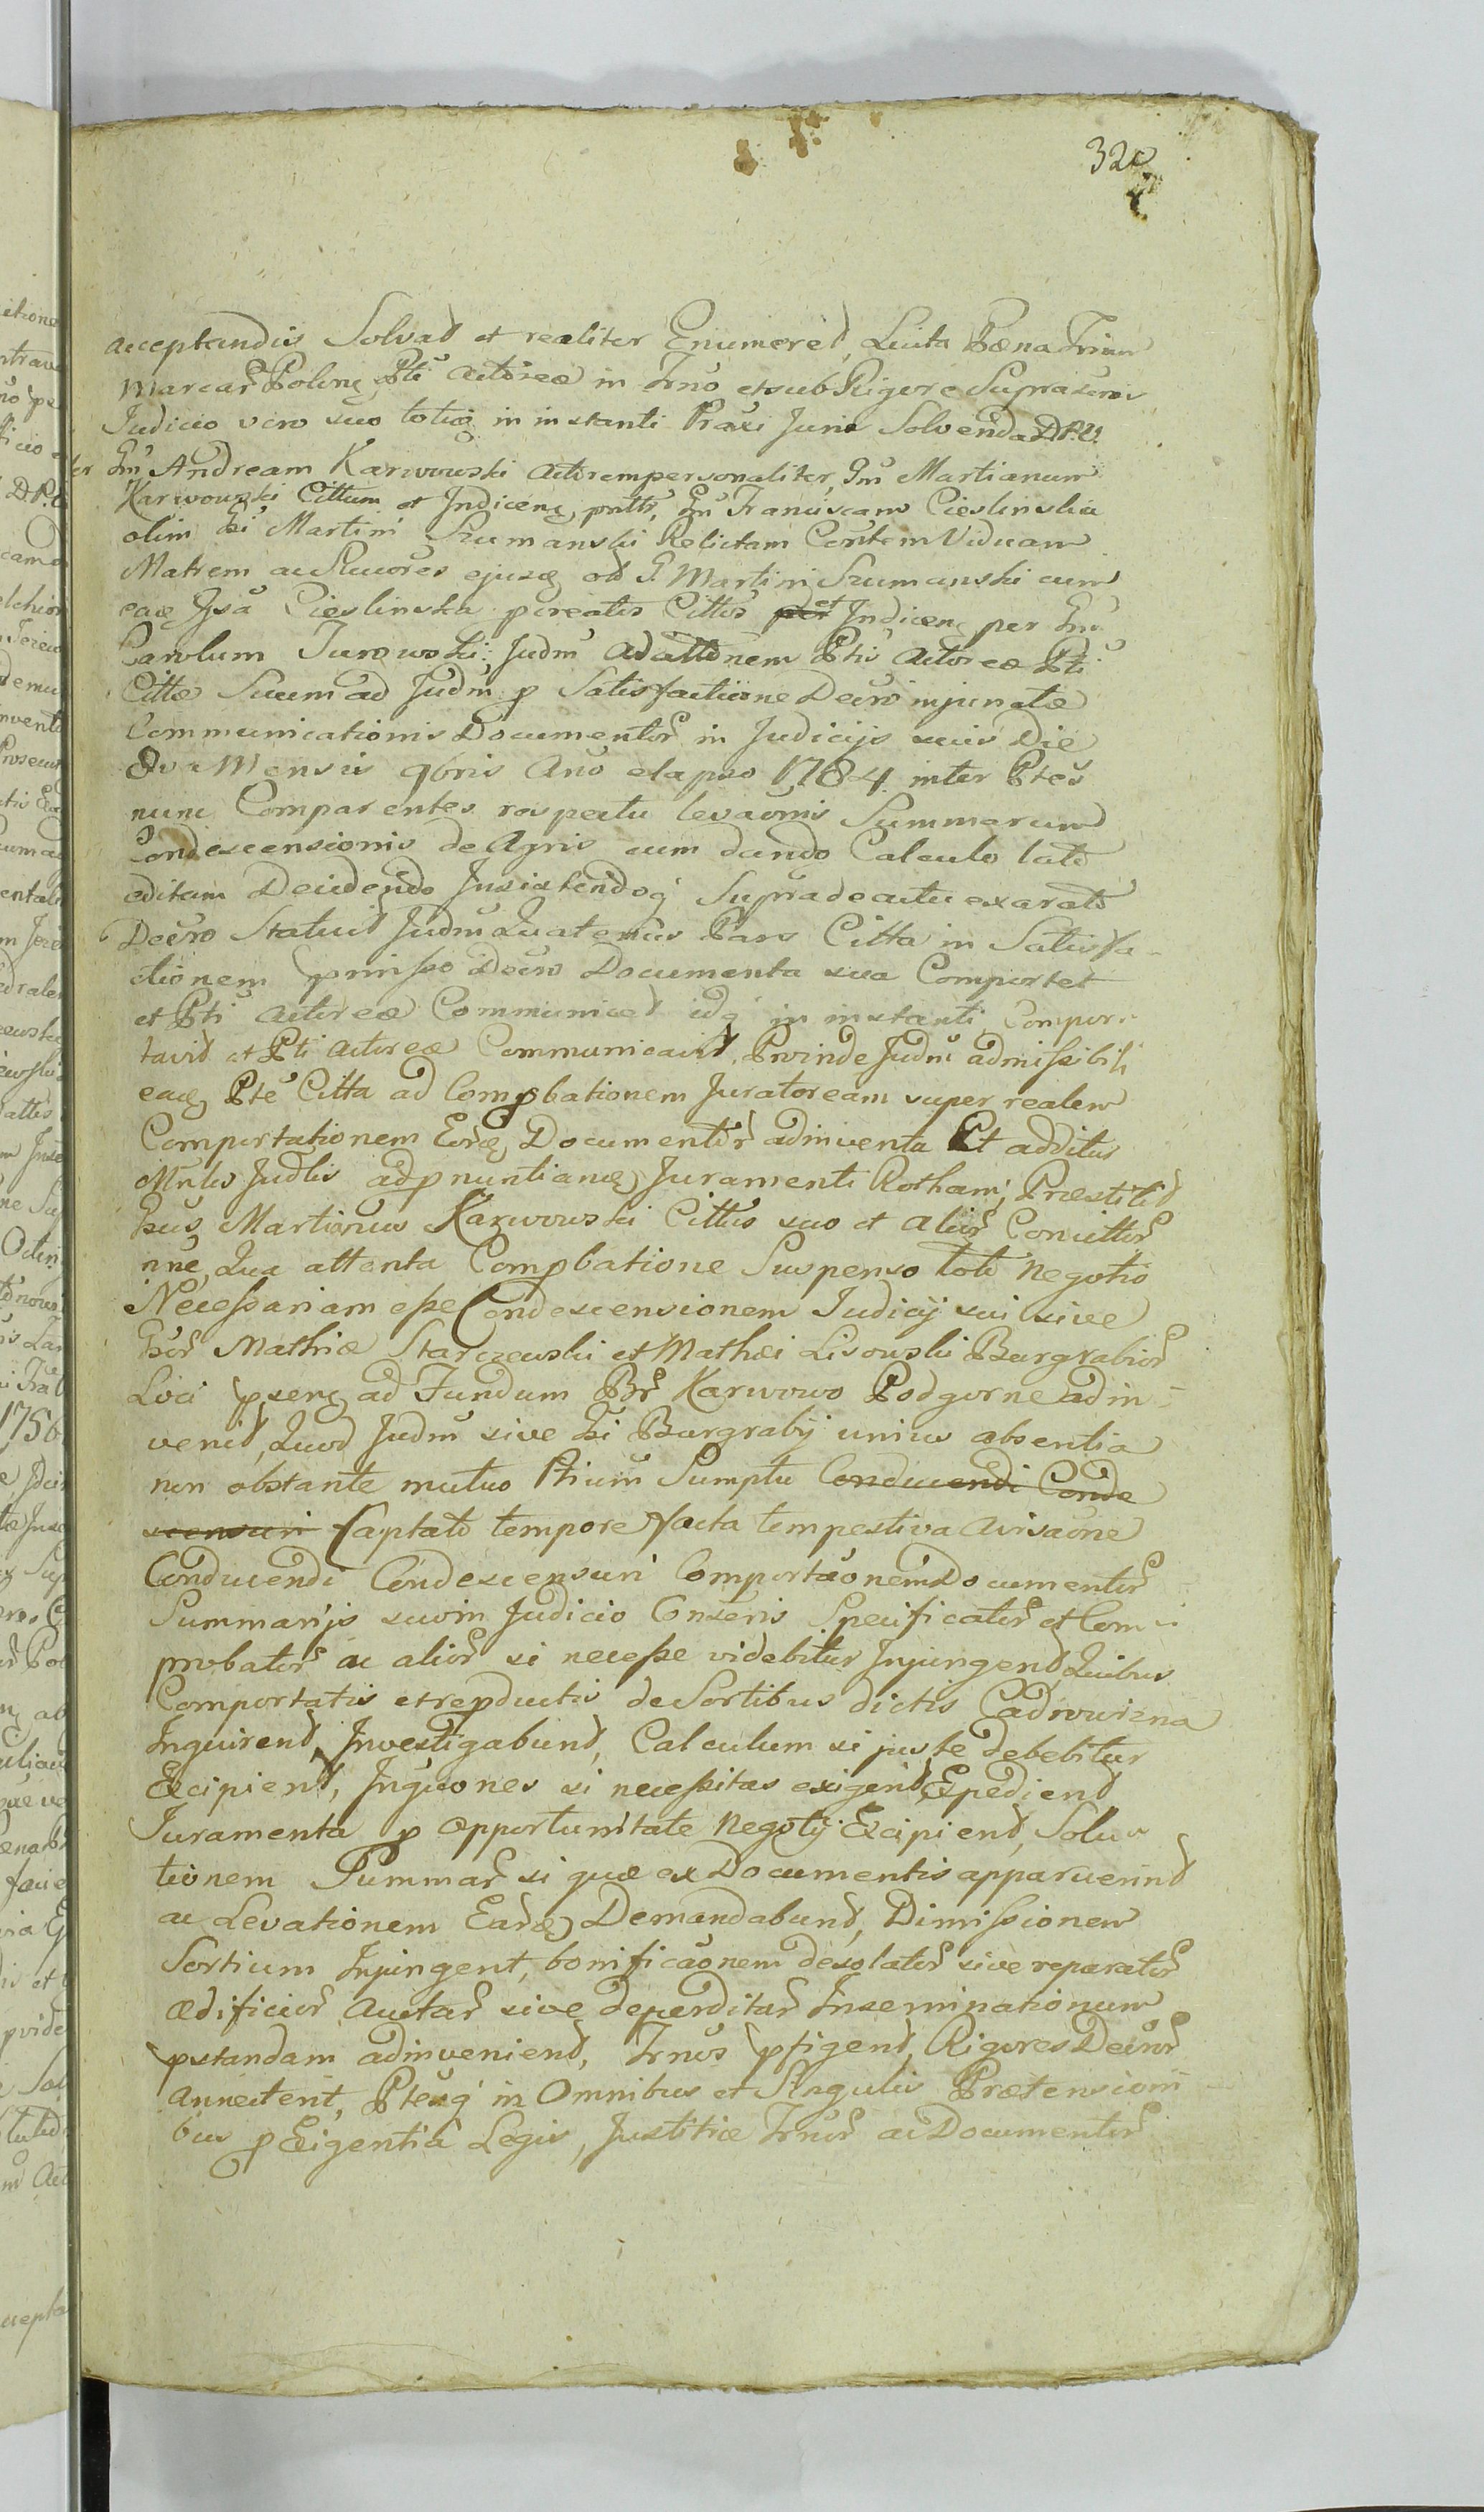 320
acceptandis Solvat et realiter Enumeret, Luita Pæna Trium
Marcar Polonę Pti Actoreæ in Trno et sub Rigore Suprascrors
Judicio vero suo totięs in instanti Praxi Juris Solvenda D.P.V.
Inter Gm Andream Karwowski Actorem personaliter, Gm Martianum
Karwowski Cittum et Indicenę pntte, Gm Franciscam Cieslinska
olim Gsi Martini Szumanski Relictam Consortem Viduam
Matrem ac Succores ejusdę ol G. Martini Szumanski cum
eadę Gsa Cieslinska pcreatos Cittos et Indicenę per Gm
Carolum Jurowski: Judm ad attonem Ptis Actoreæ Pti
Cittæ Suum ad Judm p Satisfactione Decro injunctæ
Communicationis Documentor in Judicijs suis Die
8va Mensis 9bris Ano elapso 1784 inter Ptes
nunc Comparentes respectu levaonis Summarum
Condescensionis de Agris cum dando Calculo lato
editam Decidendo Insistendoq Supra de actu exarato
Decro Statuit Judm Quatenus Pars Citta in Satisfa-
ctionem pmisso Decro Documenta sua Comportet
et Pti Actoreæ Communicet idq in instanti Compor-
tavit et Pti Actoreæ Communicavit, Proinde Judm admissibili
eadę Pte Citta ad Compbationem Juratoream super realem
Comportationem Eordę Documentor adinventa Et additus
Mnlis Judlis ad pnuntiandę Juramenti Rotham, Præstitit
Gsus Martianus Karwowski Cittus suo et alior Concittor
nne, Qua attenta Compbatione Suspenso toto Negotio
Necessariam esse Condescensionem Judicij sui sive
Gsor Mathiæ Starczewski et Mathæi Lisowski Burgrabior
Loci psenę ad Fundum Br Karwowo Podgorne adin-
venit, Quod Judm sive Gsi Burgrabij unius absentia
non obstante mutuo Ptium Sumptu Conducendi Conde
scensuri Captato tempore facta tempestiva Avisaone
Conducendi Condescensuri Comportaonem Documentor
Summarijs suo in Judicio Conseris Specificator et Com-
probator ac alior si necesse videbitur Injungent, Quibus
Comportatis et repductis de Sortibus dictis
Inquirent Investigabunt, Calculum si juste debebitur
Excipient, Inquones si necessitas exigerit Expedient
Juramenta p Opportunitate Negotij Excipient, Solu-
tionem Summar si quæ ex Documentis apparuerint
ac Levationem Eardę Demandabunt, Dimissionem
Sortium Injungent, bonificaonem desolator sive reparator
ædificior Auctar sive deperditar Inseminationum
pstandam adinvenient, Trnos pfigent, Rigores Decror
Annectent, Ptesq in Omnibus et Singulis Prætensioni-
bus p Exigentia Legis, Justitiæ Trnor ac Documentor